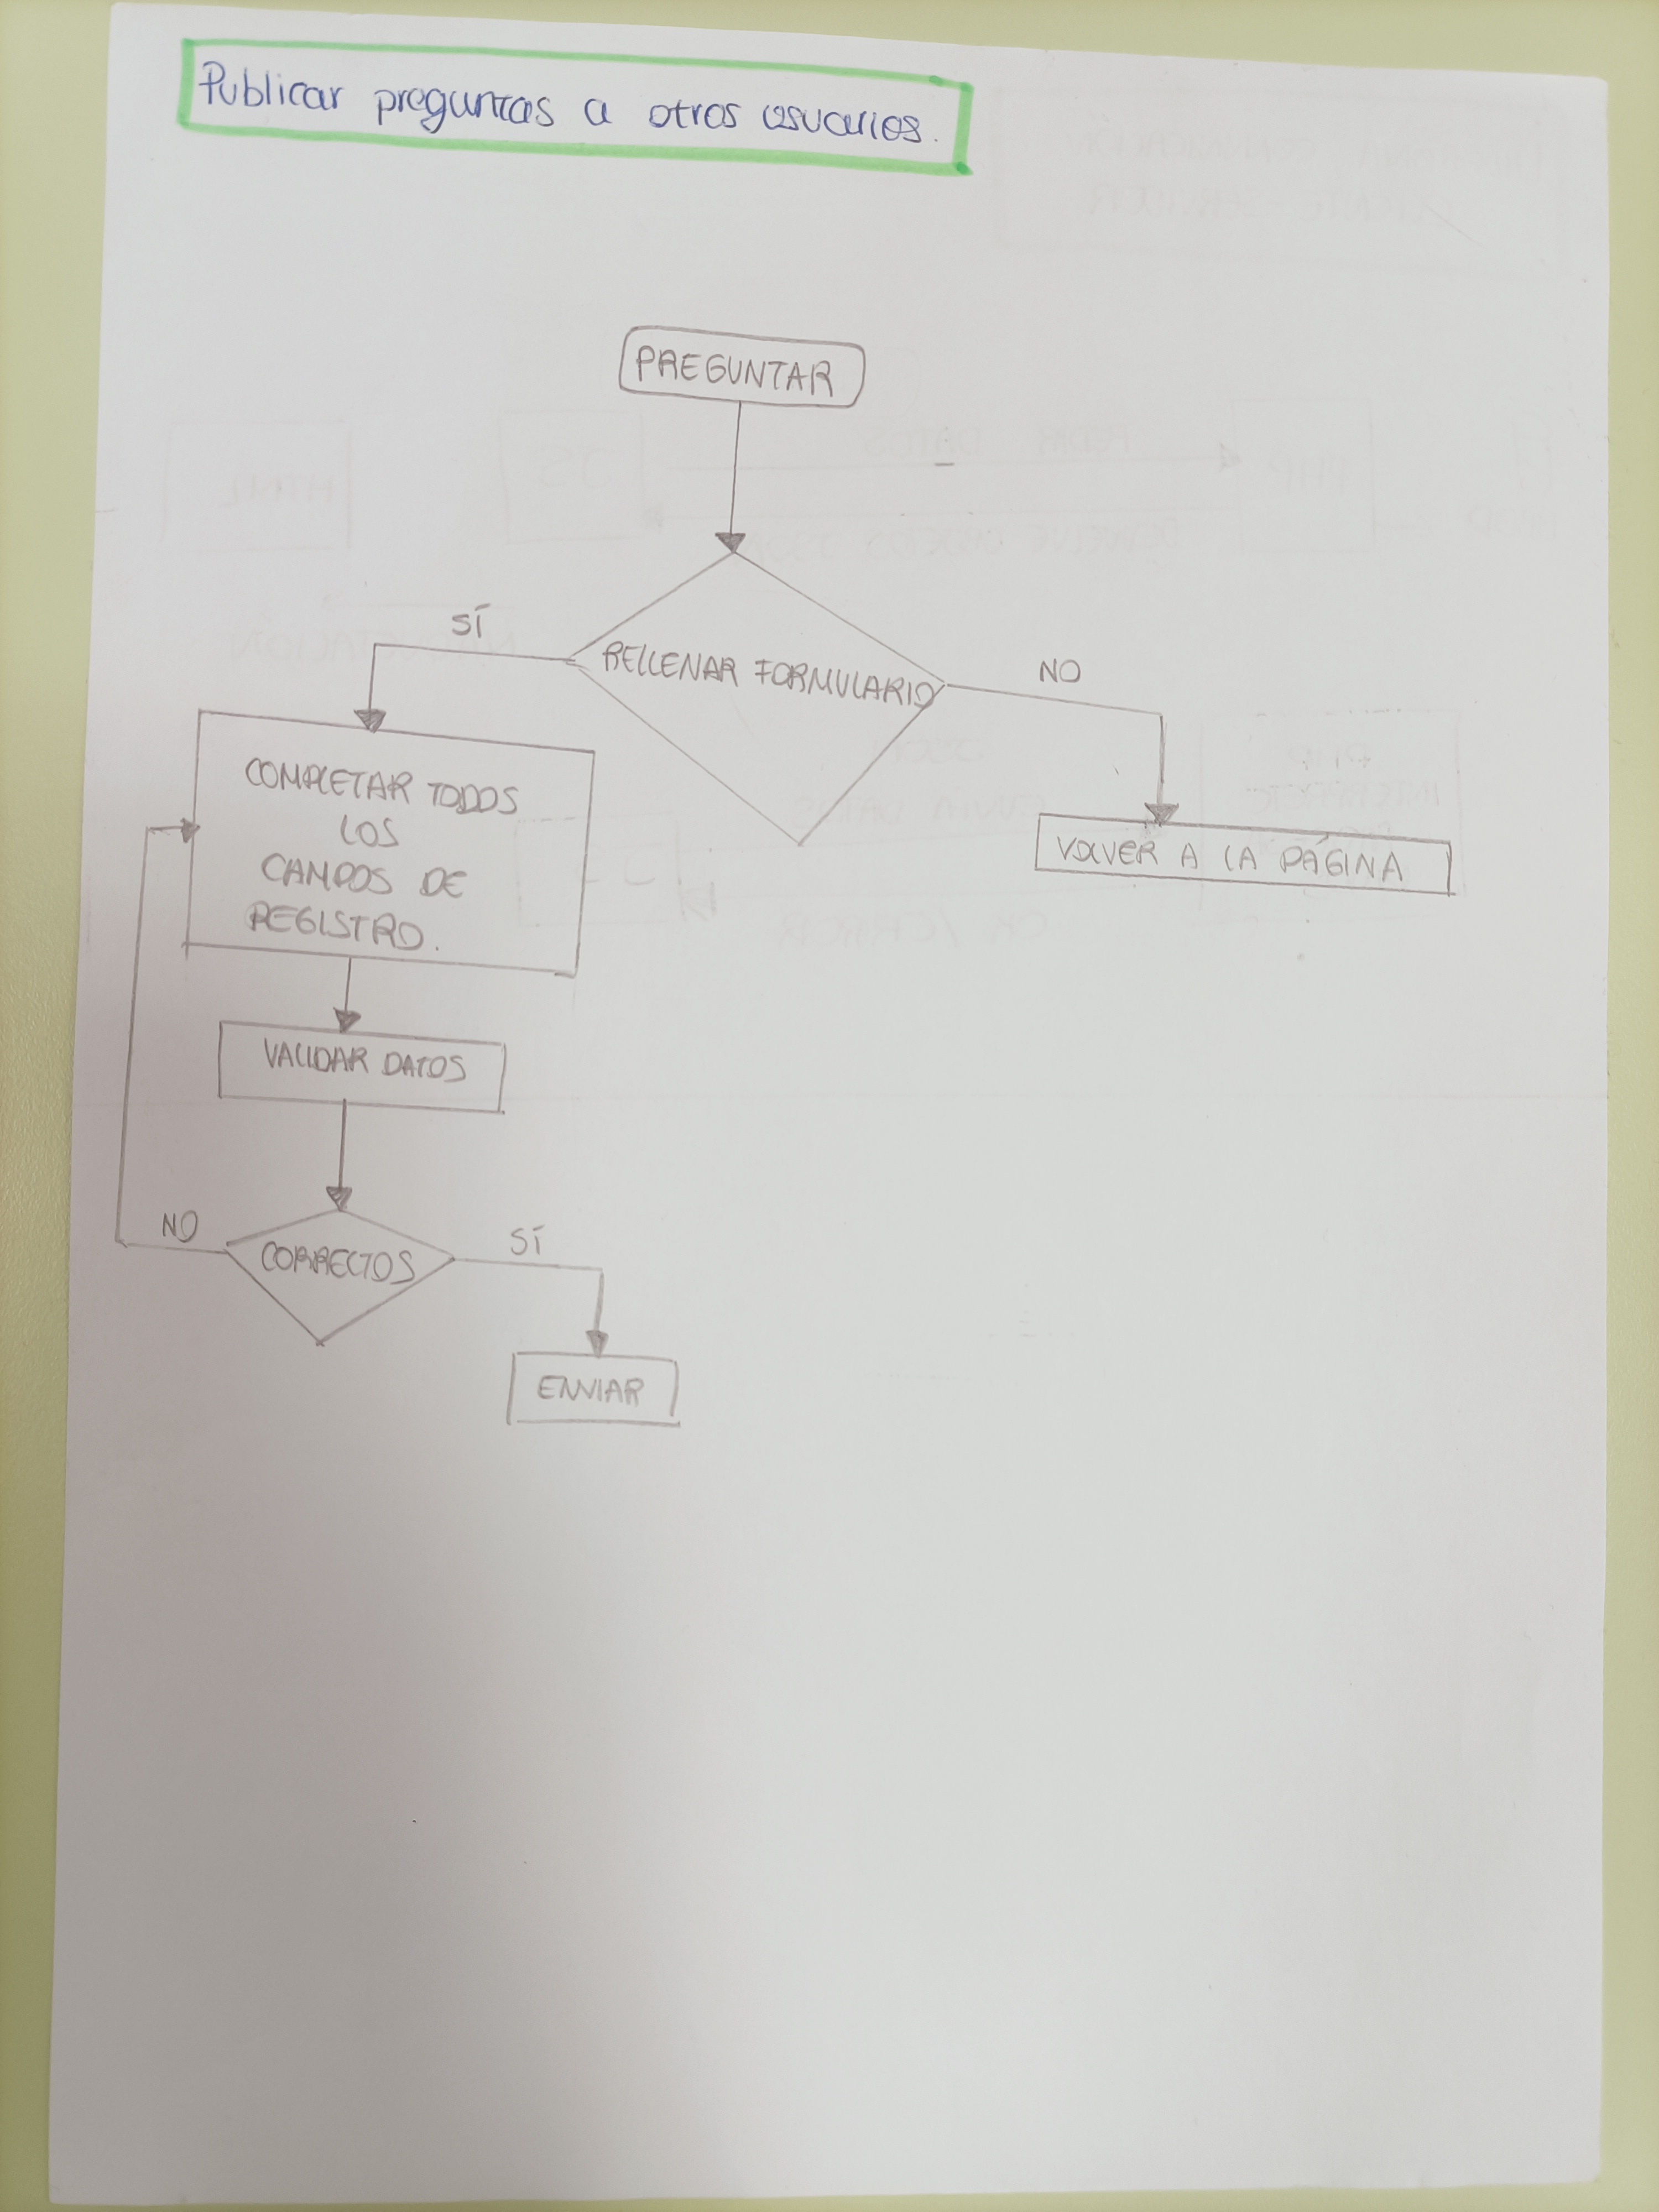 Publicar preguntas a otros usuarios.
PREGUNTAR
SÍ
RELLENAR FORMULARIO
NO
COMPLETAR TODOS
LOS
CAMPOS DE
REGISTRO.
VOLVER A LA PÁGINA
VALIDAR DATOS
NO
CORRECTOS
SÍ
ENVIAR